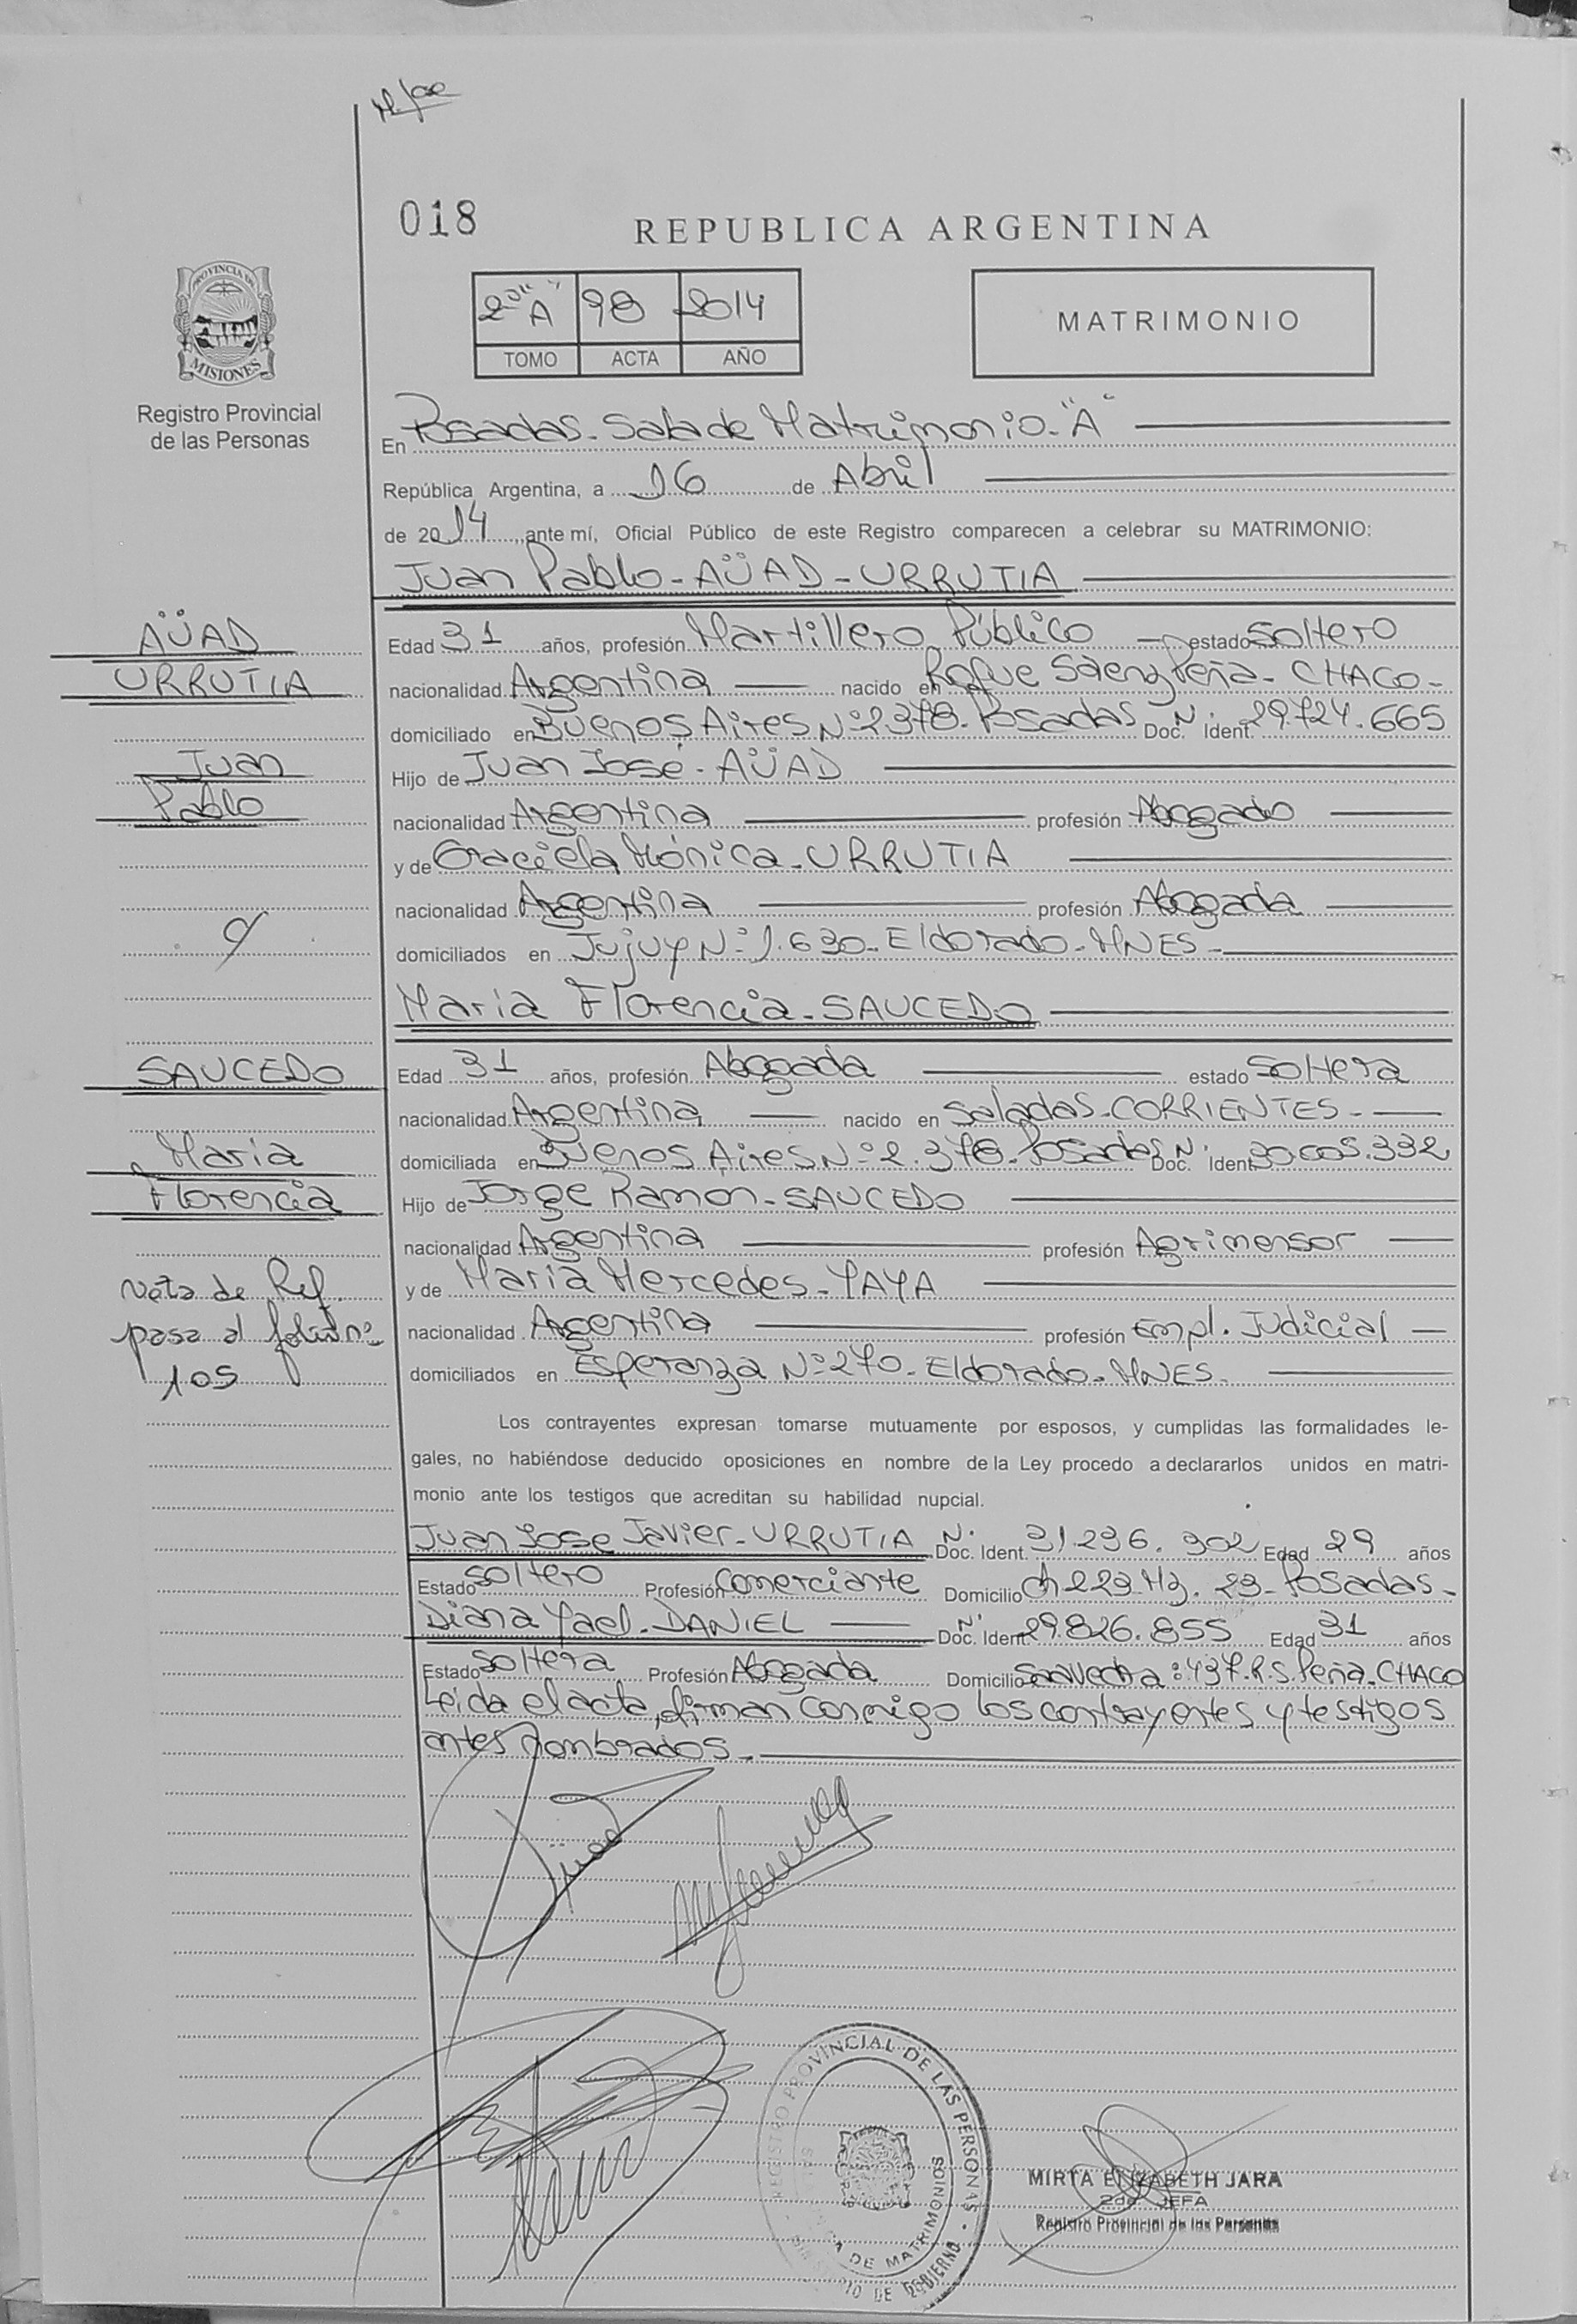 018
REPUBLICA ARGENTINA
2º "A" 98 2014
TOMO ACTA AÑO
MATRIMONIO
PROVINCIA DE
MISIONES
Registro Provincial
de las Personas
En Posadas - Sala de Matrimonio - "A"
República Argentina, a 16 de Abril
de 2014, ante mí, Oficial Público de este Registro comparecen a celebrar su MATRIMONIO:
Juan Pablo - AÜAD - URRUTIA
AÜAD
URRUTIA
Juan
Pablo
Edad 31 años, profesión Martillero Público estado soltero
nacionalidad Argentina nacido en Roque Sáenz Peña - CHACO -
domiciliado en Buenos Aires Nº 2378 - Posadas Doc. N. Ident. 29.724.665
Hijo de Juan José - AÜAD
nacionalidad Argentina profesión Abogado
y de Graciela Mónica - URRUTIA
nacionalidad Argentina profesión Abogada
domiciliados en Jujuy Nº 1.630 - Eldorado - MNES -
María Florencia - SAUCEDO
SAUCEDO
María
Florencia
Edad 31 años, profesión Abogada estado soltera
nacionalidad Argentina nacido en Saladas - CORRIENTES -
domiciliada en Buenos Aires Nº 2.378 - Posadas Doc. N. Ident. 30.005.332
Hijo de Jorge Ramón - SAUCEDO
nacionalidad Argentina profesión Agrimensor
y de María Mercedes - YAYA
nacionalidad Argentina profesión Empl. Judicial
domiciliados en Esperanza Nº 270 - Eldorado - MNES -
Nota de Ref.
pasa al folio nº
105
Los contrayentes expresan tomarse mutuamente por esposos, y cumplidas las formalidades le-
gales, no habiéndose deducido oposiciones en nombre de la Ley procedo a declararlos unidos en matri-
monio ante los testigos que acreditan su habilidad nupcial.
Juan Jose Javier - URRUTIA N. Doc. Ident. 31.236.902 Edad 29 años
Estado soltero Profesión Comerciante Domicilio Ch 223 Mz. 23 - Posadas -
Diana Yael - DANIEL N. Doc. Ident. 29.826.855 Edad 31 años
Estado soltera Profesión Abogada Domicilio Saavedra: 437. R.S. Peña - CHACO
Leída el acta, firman conmigo los contrayentes y testigos
antes nombrados.
REGISTRO PROVINCIAL DE LAS PERSONAS
DE MATRIMONIOS
DE GOBIERNO
MIRTA ELIZABETH JARA
2da JEFA
Registro Provincial de las Personas